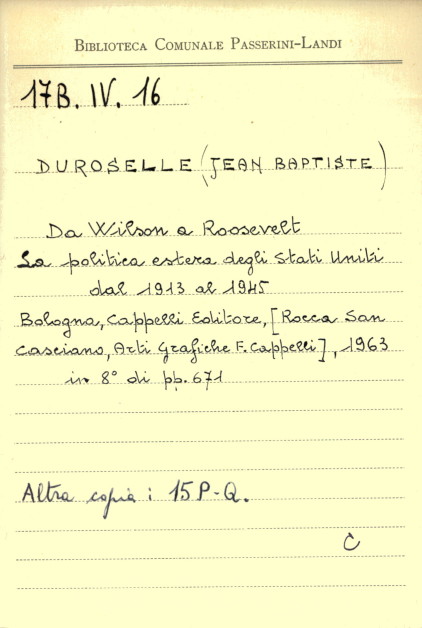 BIBLIOTECA COMUNALE PASSERINI-LANDI
17B. IV. 16
DUROSELLE (JEAN BAPTISTE)
Da Wilson a Roosevelt
La politica estera degli Stati Uniti
dal 1913 al 1945
Bologna, Cappelli Editore, [Rocca San
Casciano, Arti Grafiche F. Cappelli], 1963
in 8° di pp. 671
Altra copia: 15 P-Q.
C